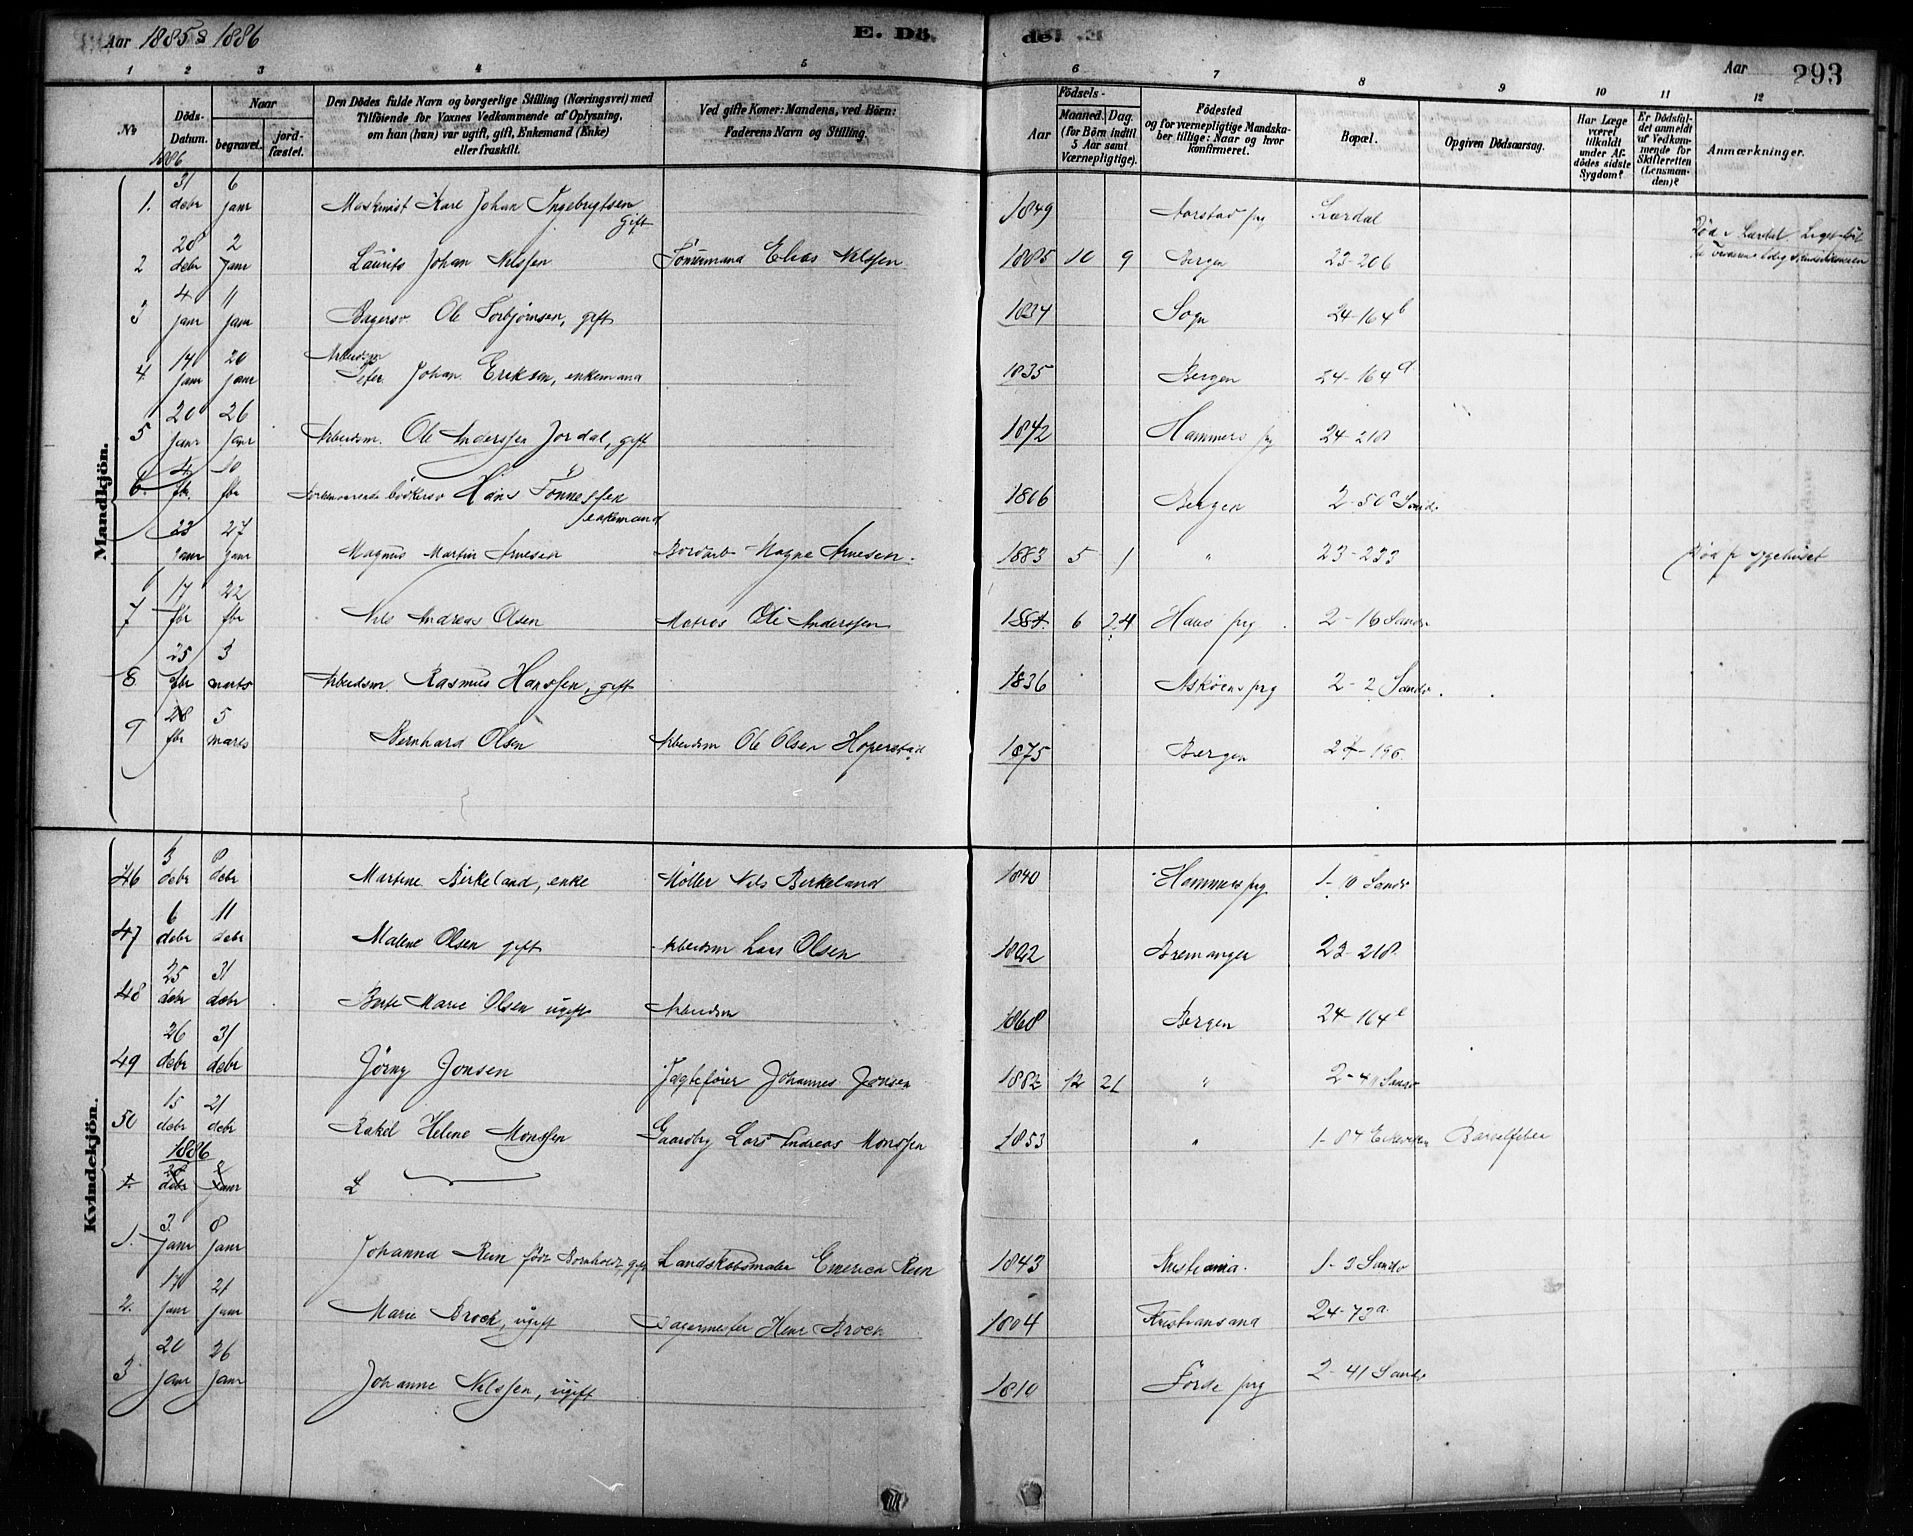 Aar 1885 & 1886 E. Dö. de. Aar 293
1 2 3 4 5 6 7 8 9 10 11 12
No Döds-Datum. Naar begravet. jordfæstet. Den Dödes fulde Navn og borgerlige Stilling (Næringsvei) med Tilföiende for Voxnes Vedkommende af Oplysning, om han (hun) var ugift, gift, Enkemand (Enke) eller fraskilt. Ved gifte Koner: Mandens, ved Börn: Faderens Navn og Stilling. Födsels- Aar Maaned. Dag. (for Börn indtil 5 Aar samt Værnepligtige). Födested og for værnepligtige Mandskaber tillige: Naar og hvor konfirmeret. Bopæl. Opgiven Dödsaarsag. Har Læge været tilkaldt under Afdödes sidste Sygdom? Er Dödsfaldet anmeldt af Vedkommende for Skifteretten (Lensmanden)? Anmærkninger.
1886
Mandkjön.
1. 31 debr 6 janr Maskinist Karl Johan Ingebrigtsen gift 1849 Aarstad prg Lærdal Död i Lærdal
2 28 debr 2 Janr Laurits Johan Nilssen Tömermand Elias Nilssen 1885 10 9 Bergen 23-206
3 4 janr 11 janr Bagersv. Ole Torbjørnsen, gift 1834 Sogn 24-164 b
4 14 janr 20 janr Arbeidsm Peter Johan Eriksen, enkemand 1835 Bergen 24-164 d
5 20 janr 26 janr Arbeidsm. Ole Anderssen Jordal, gift 1842 Hammers prg 24-218
6. 4 fbr. 10 fbr Forhenværende bödkersv Hans Tönnessen enkemand 1806 Bergen 2-50 a Sandv
23 janr 27 janr Magnus Martin Arnesen Bordarb. Magne Arnesen. 1883 5 1 " 23-233 Död p sygehuset
7 17 fbr 22 fbr Nils Andreas Olsen Matros Ole Anderssen 1884. 6 24 Haus prg. 2-16 Sandv
8 25 fbr 3 marts Arbeidsm. Rasmus Hanssen, gift 1836 Askøens prg 2-2 Sandv.
9 28 fbr 5 marts Bernhard Olsen Arbeidsm Ole Olsen Hoperstad 1875 Bergen 24-196.
Kvindekjön.
46 3 debr 8 debr Martine Birkeland, enke Møller Nils Birkeland 1840 Hammers prg 1-10 Sandv
47 6 debr 11 debr Malene Olsen gift Arbeidsm Lars Olsen Bremanger 23-218.
48 25 debr 31 debr Berte Marie Olsen ugift Arbeidsm 1868 Bergen 24-164 e
49 26 debr 31 debr Jörny Jonsen Jægtefører Johannes Jonsen 1882 12 21 " Sandv
50 15 debr 21 debr Rakel Helene Monssen Gaardbr Lars Andreas Monssen 1853 " 1-87 Barselfeber
1886
1. 28 debr 2 Janr L
1. 3. janr 8 janr Johanna Rein født Bornholdt, gift Landskabsmaler Emerich Rein 1843 Kristiania. 1-3 Sandv
2. 17 janr 21 janr Marie Brock, ugift Bagermester Henr Brock 1804 Kristiansand 24-73 a.
3 20 janr 26 janr Johanne Nilssen, ugift 1810 Förde prg 2-41 Sandv